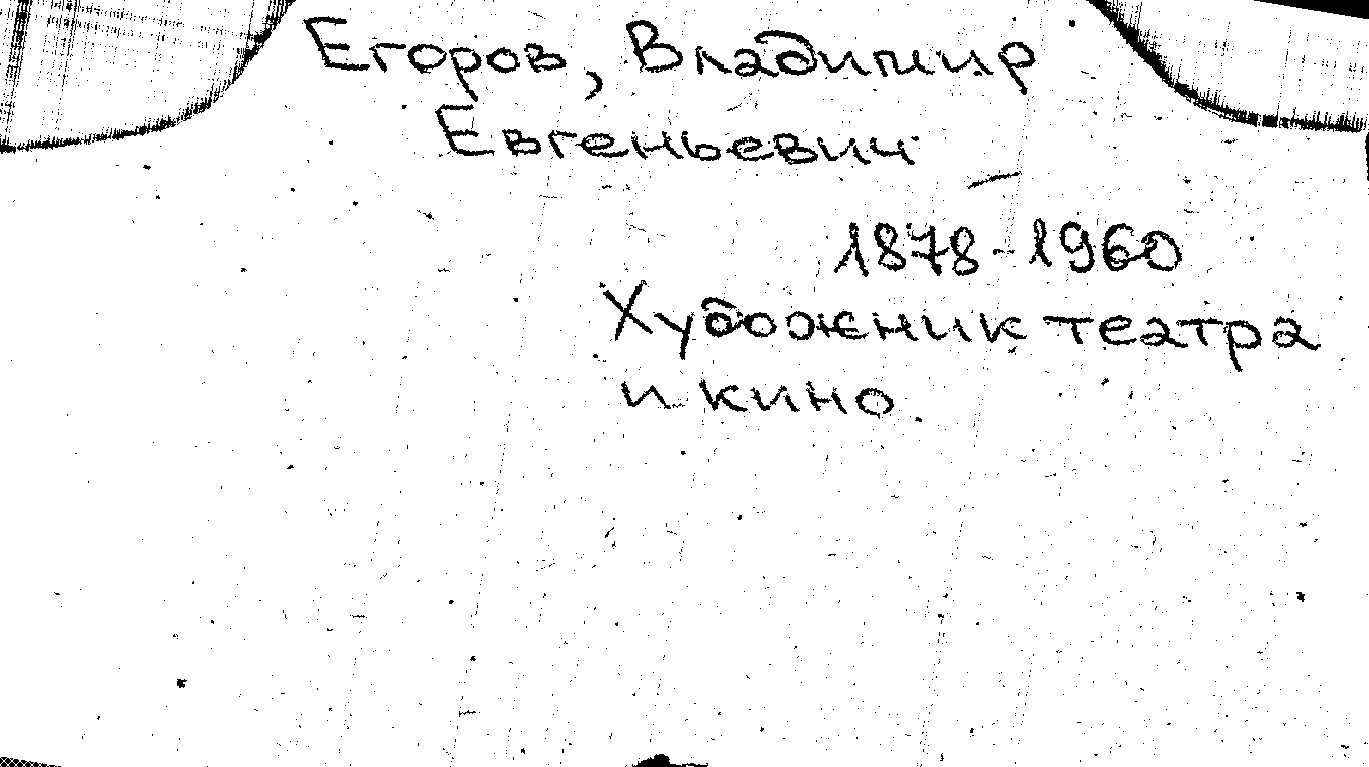 Егоров, Владимир
Евгеньевич
1878-1960
Художник театра
и кино.